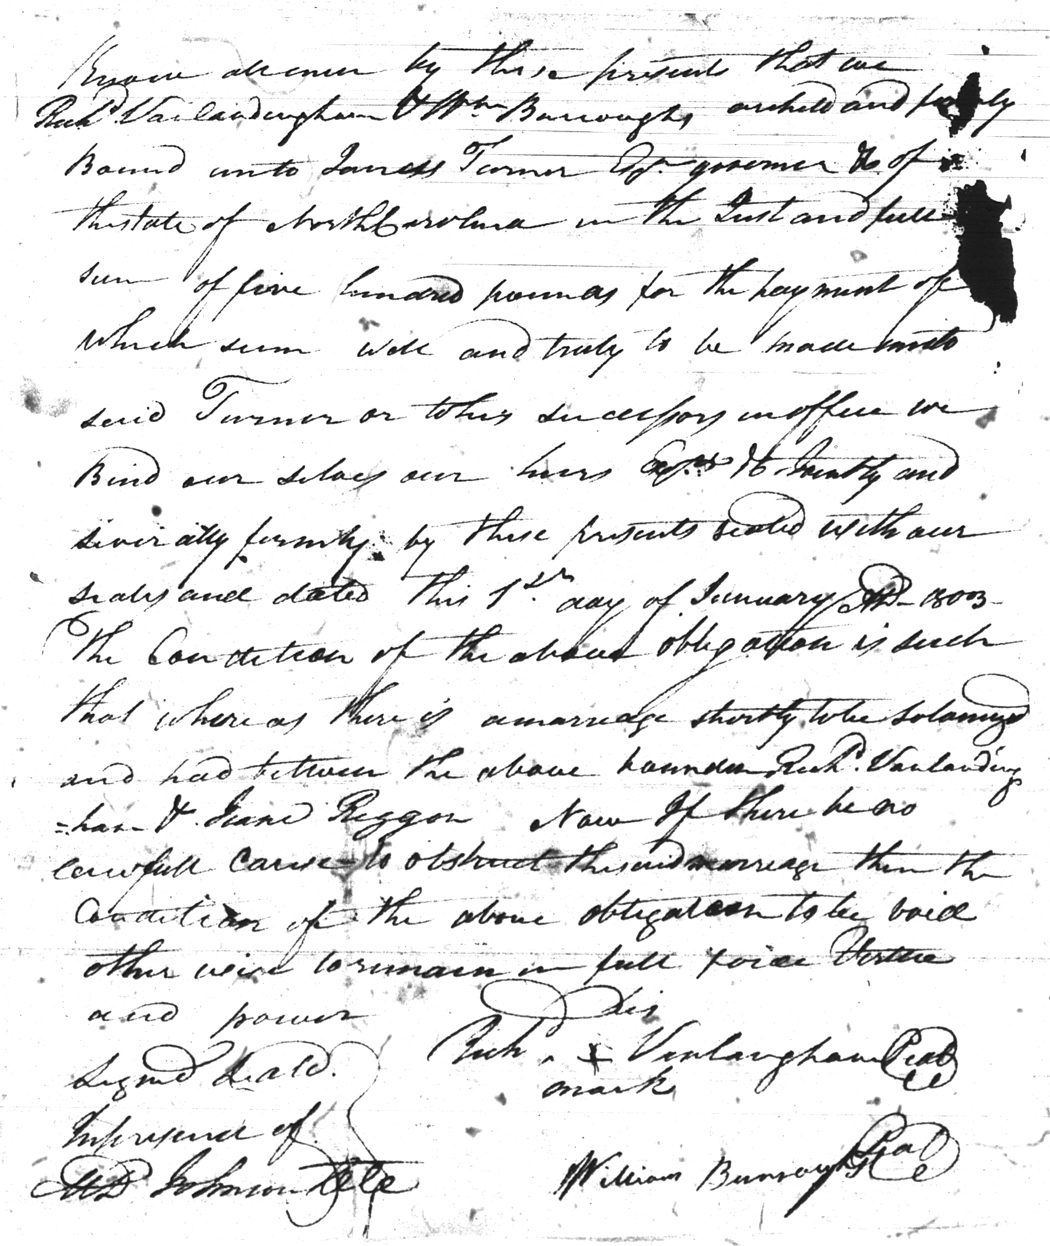 Know all men by these presents that we
Richd. Vanlandingham & Wm Burroughs are held and firmly
Bound unto James Turner Esqr. governor &c of
the state of North Carolina in the Just and full
sum of five hundred pounds for the payment of
which sum well and truly to be made unto
said Turner or to his successors in office we
Bind our selves our heirs Exrs &c Jointly and
severally firmly by these presents sealed with our
seals and dated this 1st day of January AD 1803
The Condition of the above obligation is such
that where as there is a marreage shortly to be Solamized
and had between the above bounden Richd. Vanlanding
=ham & Jeane Riggon Now If there be no
lawfull Cause to obstruct the said marreage then the
Condition of the above obligation to be void
other wise to remain in full force Virtue
and power
Signd Seald.
In presence of
AD Johnson
his
Richd. + Vanlangham Seal
mark
William Burroughs Seal